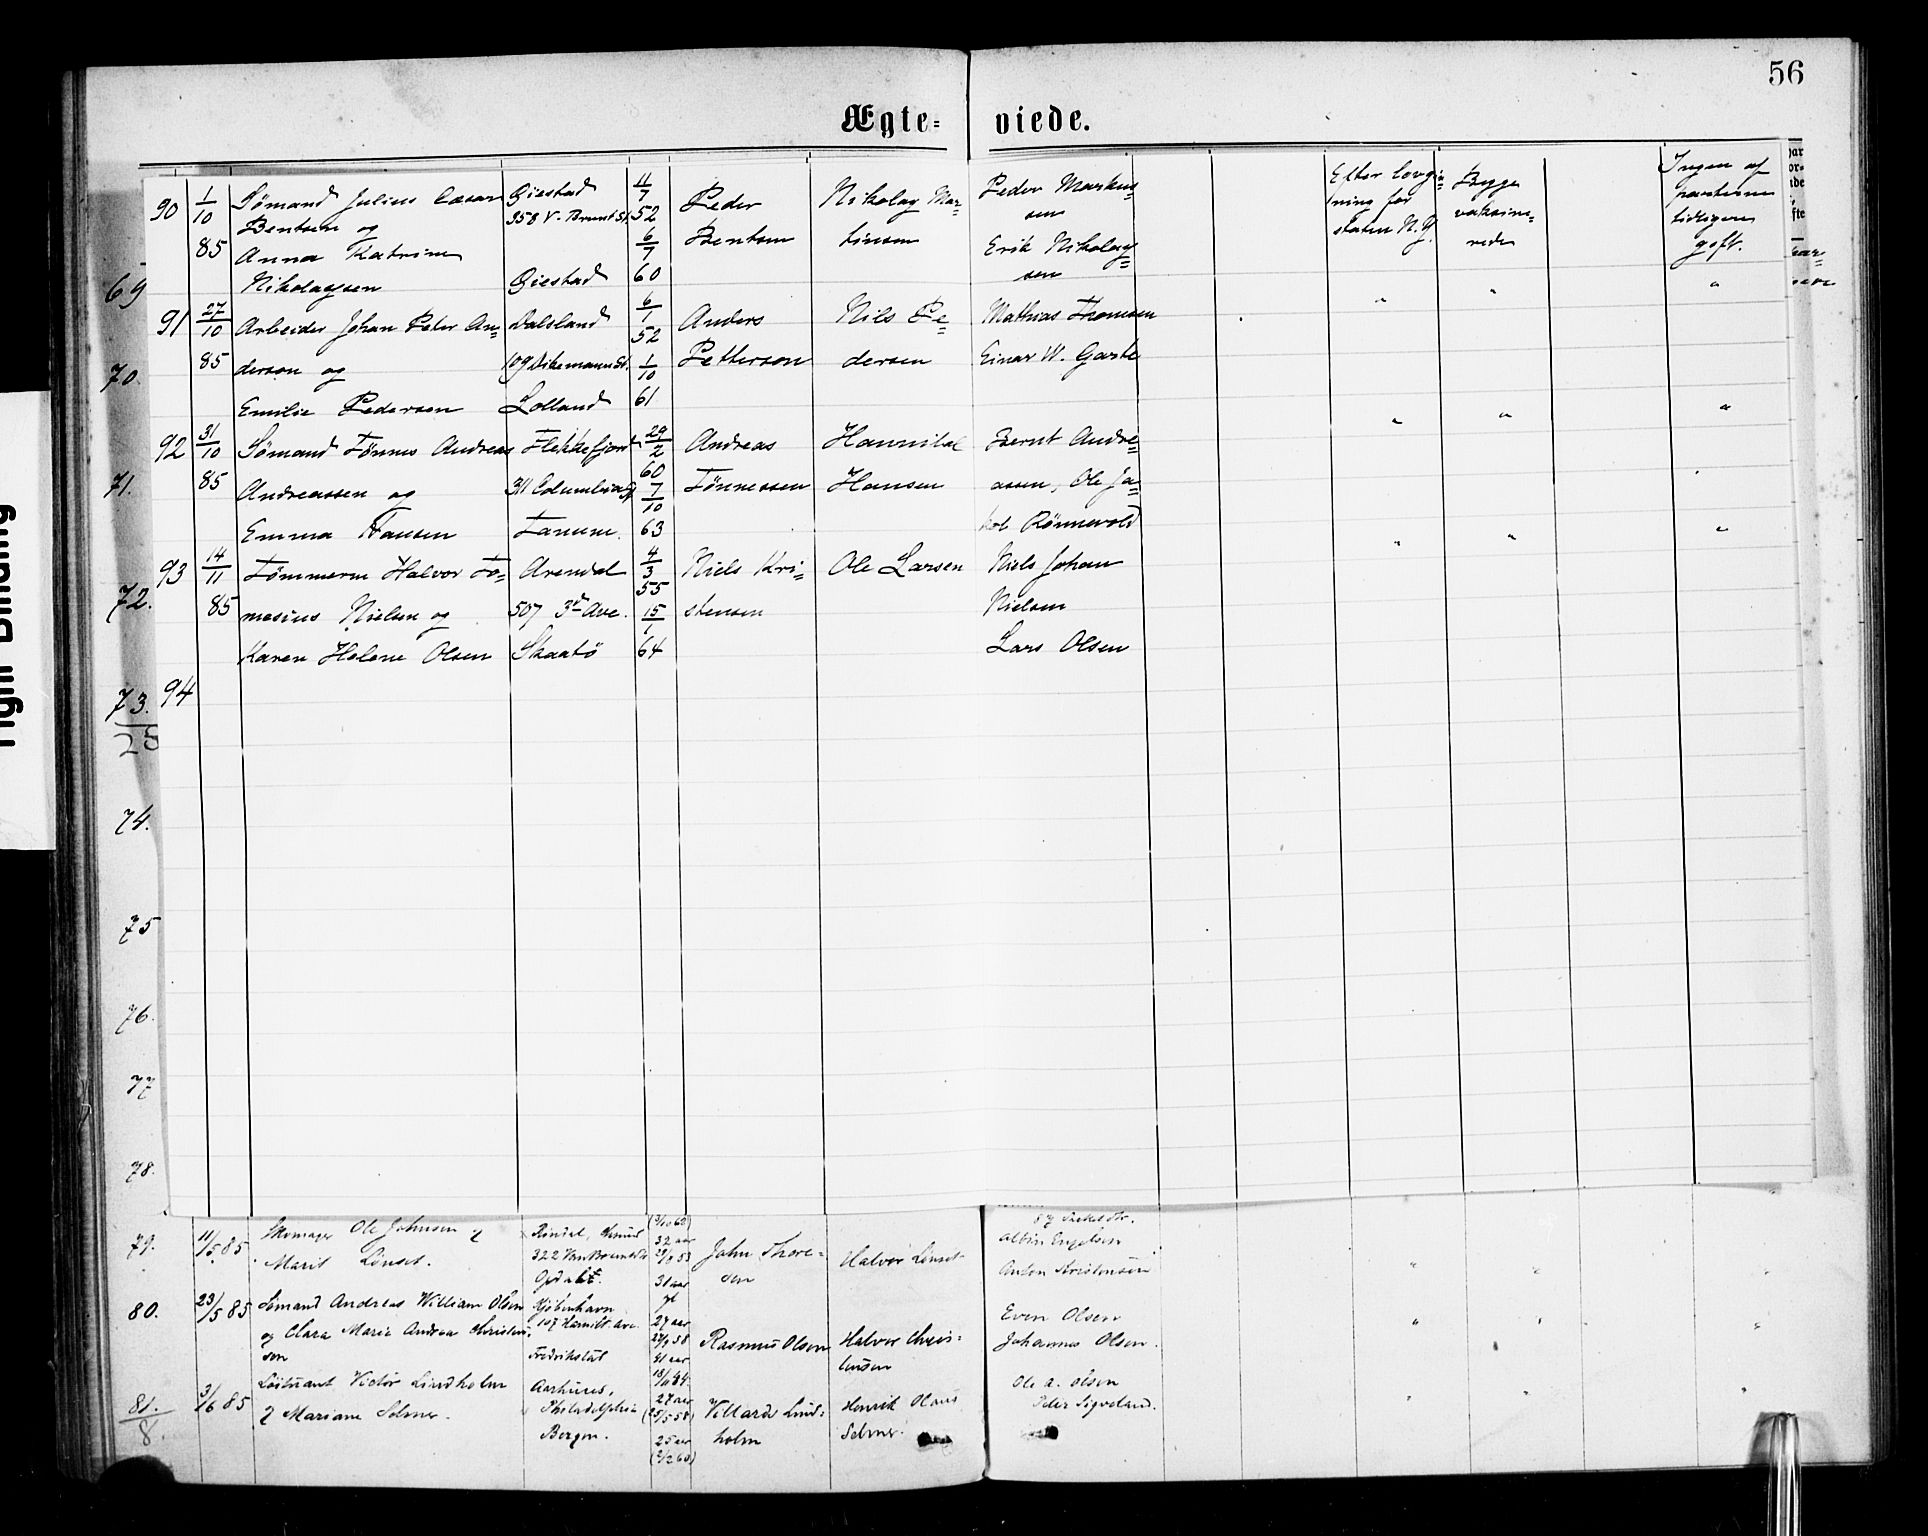 56
Ægte= viede.
90 1/10 85 Sømand Julius Cæsar Bentsen og Anna Katrine Nikolaysen
Øiestad 358 V. Brunt St. Øiestad
11/7 52 6/7 60
Peder Bentsen
Nikolay Mar=tinsen
Peder Markus=sen
Erik Nikolay=sen
Efter lovgiv=ning for staten N.Y.
Begge vaksine=rede
Ingen af parterne tidligere gift.
69
91 27/10 85 Arbeider Johan Peter An=derson og Emilie Pedersen
Dalsland
Lolland
6/1 52 1/10 61
Anders Petterson
Nils Pe=dersen
Mathias Thomsen
Einar W. Garbe
" " "
70.
92 31/10 85 Sømand Tønnes Andreas Andreassen og Emma Hansen
Flekkefjord 311 Columbia St. Tanum.
29/2 60 7/10 63
Andreas Tønnessen
Hannibal Hansen
Bernt Andre=assen, Ole Ja=kob Rønnevold
" " "
71.
93 14/11 85 Tømmerm Halvor To=mesius Nielsen og Karen Helene Olsen
Arendal 507 3rd Ave. Skaatø
4/3 55 15/1 64
Niels Kri=stensen
Ole Larsen
Niels Johan Nielsen
Lars Olsen
" " "
72.
94
73.
25
74.
75
76.
77
78.
79. 11/5 85 Skomager Ole Johnsen &
Marit Lönset.
Rindal,
322 Van Brunt Str
Opdal
32 aar
31 aar
John Thore=sen
Halvor Lönset
Albin Engelsen
Anton Kristensen
" "
80. 23/5 85 Sømand Andreas William Olsen
og Clara Marie Andrea Christen=sen
Kjøbenhavn
107 Hamilt. Ave.
Fredrikstad
27 aar
21 aar
Rasmus Olsen
Halvor Chris=tensen
Even Olsen
Johannes Olsen.
" " "
81. 3/6 85 Löitnant Victor Lindholm
& Mariane Selmer.
8.
Aarhuus,
Philadelphia
Bergen.
27 aar
(25/5 58)
25 aar
(2/2 60)
Villard Lind=holm
Henrik Hans Selmer.
Ole A. Olsen
Peter Sigveland.
" " "